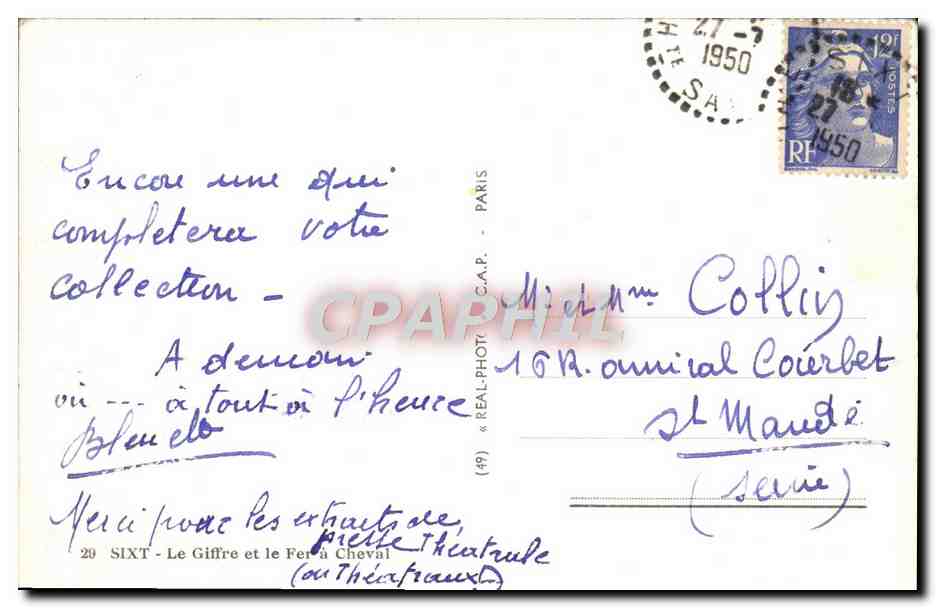 27-7
1950
HTE SA
12F
POSTES
RF
18
27
1950
Encore une qui
completera votre
collection -
A demain
ou --- à tout à l'heure
Merci pour les extraits de
presse théatrale
(ou Théatraux)
29 SIXT - Le Giffre et le Fer à Cheval
(49) « REAL-PHOTO C.A.P. - PARIS
CPAPHIL
Mr et Mme Collin
16 R. amiral Courbet
St Mandé
(Seine)